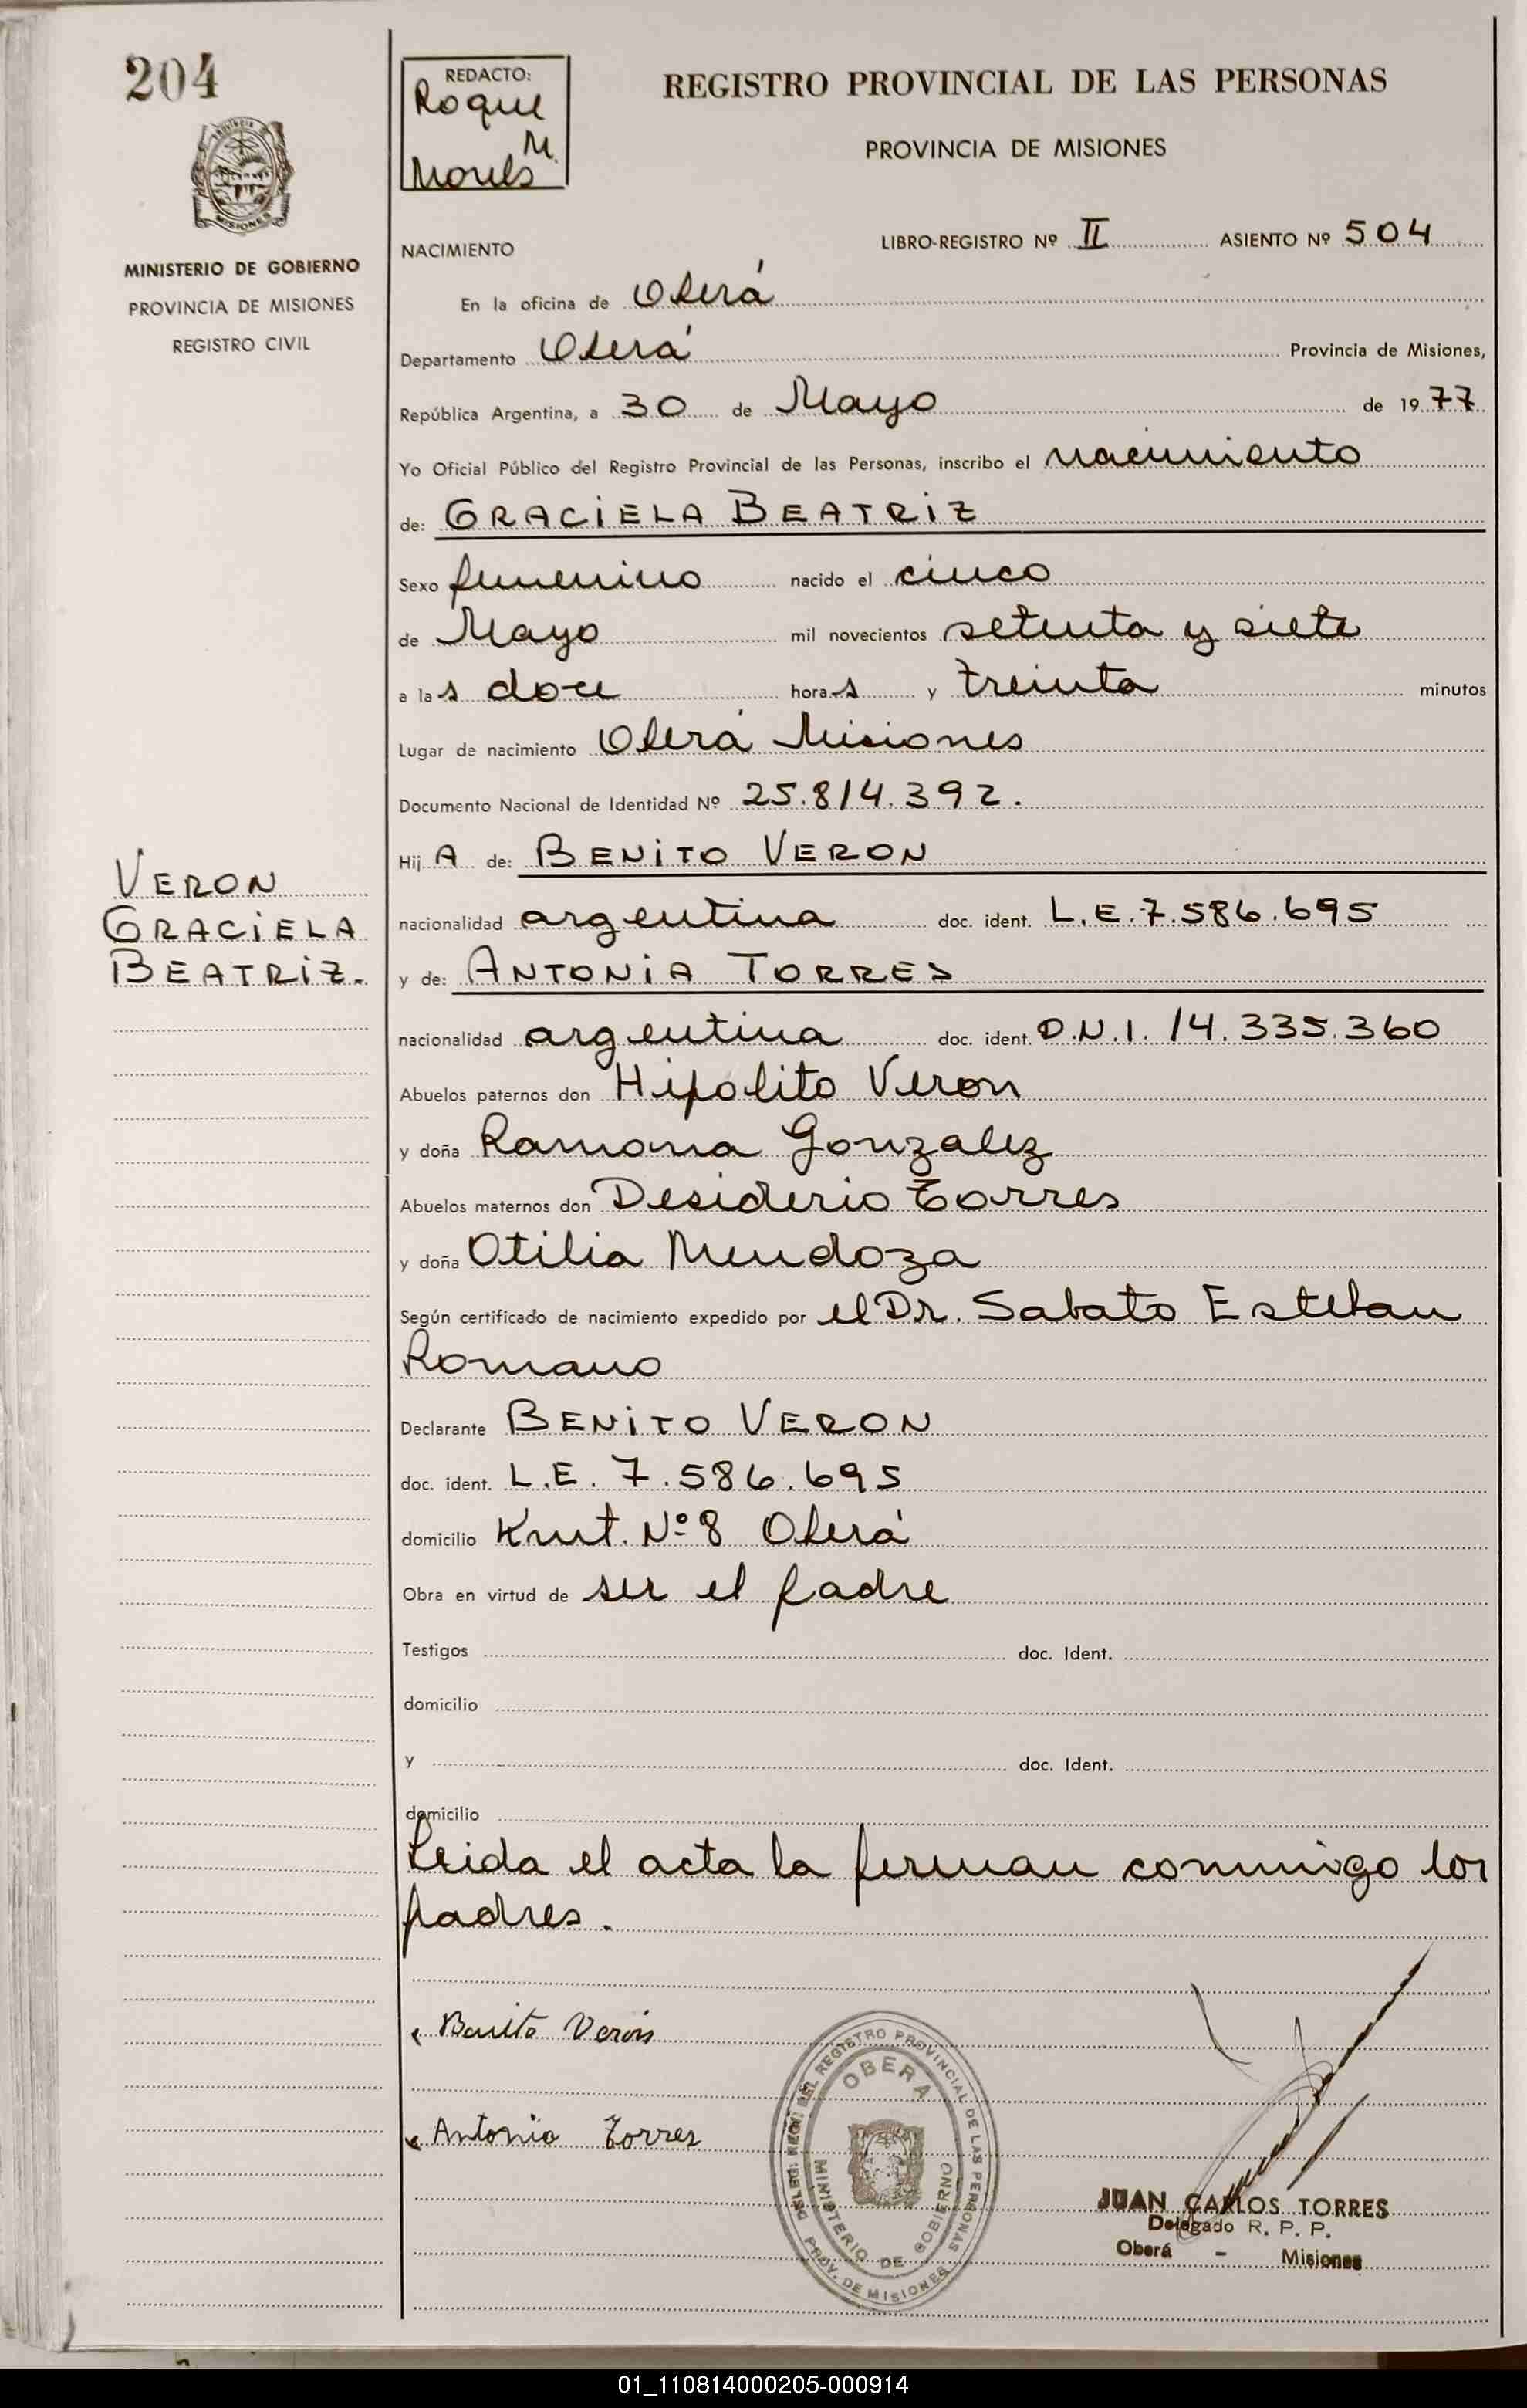 204
REDACTO:
Roque
M.
REGISTRO PROVINCIAL DE LAS PERSONAS
PROVINCIA DE MISIONES
MISIONES
MINISTERIO DE GOBIERNO
PROVINCIA DE MISIONES
REGISTRO CIVIL
NACIMIENTO
LIBRO-REGISTRO Nº II ASIENTO Nº 504
En la oficina de Oberá
Departamento Oberá Provincia de Misiones,
República Argentina, a 30 de Mayo de 1977
Yo Oficial Público del Registro Provincial de las Personas, inscribo el nacimiento
de: GRACIELA BEATRIZ
Sexo femenino nacido el cinco
de Mayo mil novecientos setenta y siete
a las doce horas y treinta minutos
Lugar de nacimiento Oberá Misiones
Documento Nacional de Identidad Nº 25.814.392.
Hij A de: BENITO VERON
VERON
GRACIELA
BEATRIZ.
nacionalidad argentina doc. ident. L.E. 7.586.695
y de: ANTONIA TORRES
nacionalidad argentina doc. ident. D.N.I. 14.335.360
Abuelos paternos don Hipólito Veron
y doña Ramona Gonzalez
Abuelos maternos don Desiderio Torres
y doña Otilia Mendoza
Según certificado de nacimiento expedido por el Dr. Sabato Esteban
Romano
Declarante BENITO VERON
doc. ident. L.E. 7.586.695
domicilio Kmt. Nº 8 Oberá
Obra en virtud de ser el padre
Testigos doc. Ident.
domicilio
y doc. Ident.
domicilio
Leida el acta la firman conmigo los
padres.
Benito Verón
Antonia Torres
DELEG. REG. DEL REGISTRO PROVINCIAL DE LAS PERSONAS
OBERA
MINISTERIO DE GOBIERNO
PROV. DE MISIONES
JUAN CARLOS TORRES
Delegado R. P. P.
Oberá - Misiones
01_110814000205-000914